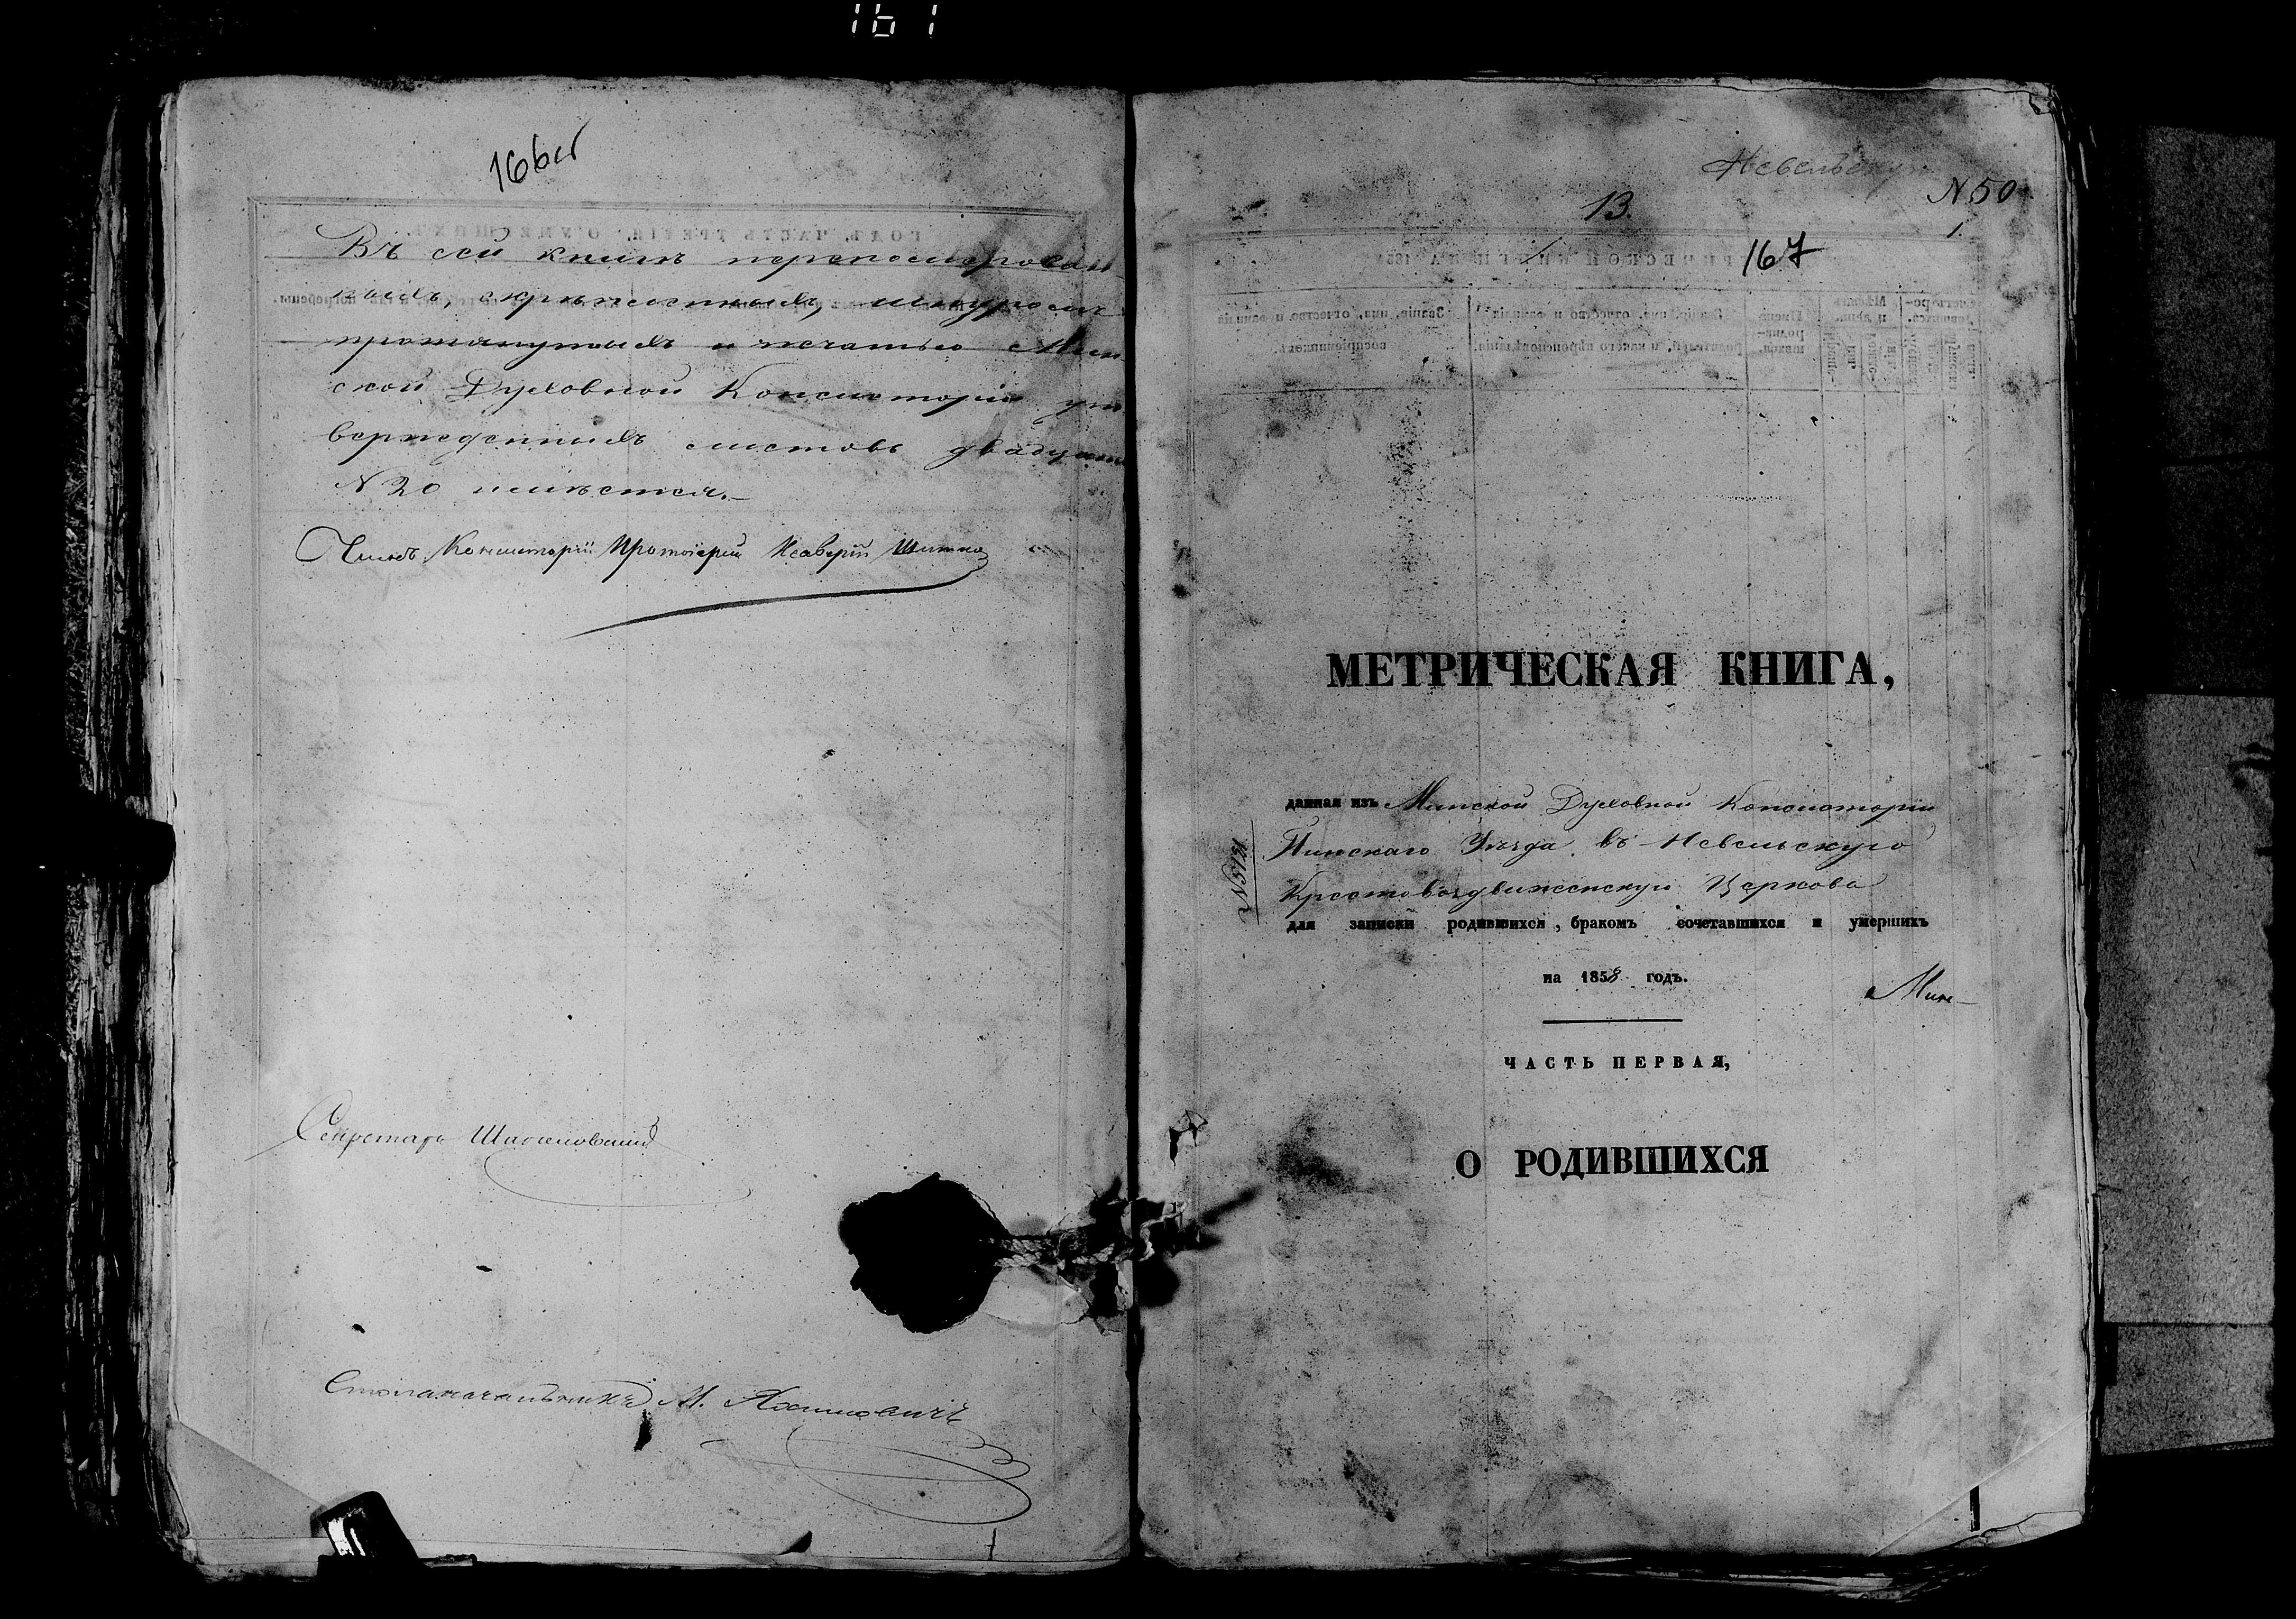 161
166об
Въ сей книгѣ перенумерован
ныхъ, скрѣпленныхъ, шнуромъ
протянутыхъ и печатью Мин
ской Духовной Консисторіи ут
вержденныхъ листовъ двадцать
N 20 имѣется.
Членъ Консисторіи Протоіерей Ксаверій
Секретарь
Столоначальникъ М.
Невельскую
N 50
13.
1
167
МЕТРИЧЕСКАЯ КНИГА,
данная изъ Минской Духовной Консисторіи
Пинскаго Уѣзда въ Невельскую
Крестовоздвиженскую Церковь
для записки родившихся, бракомъ сочетавшихся и умершихъ
на 1858 годъ.
Мин-
ЧАСТЬ ПЕРВАЯ,
О РОДИВШИХСЯ